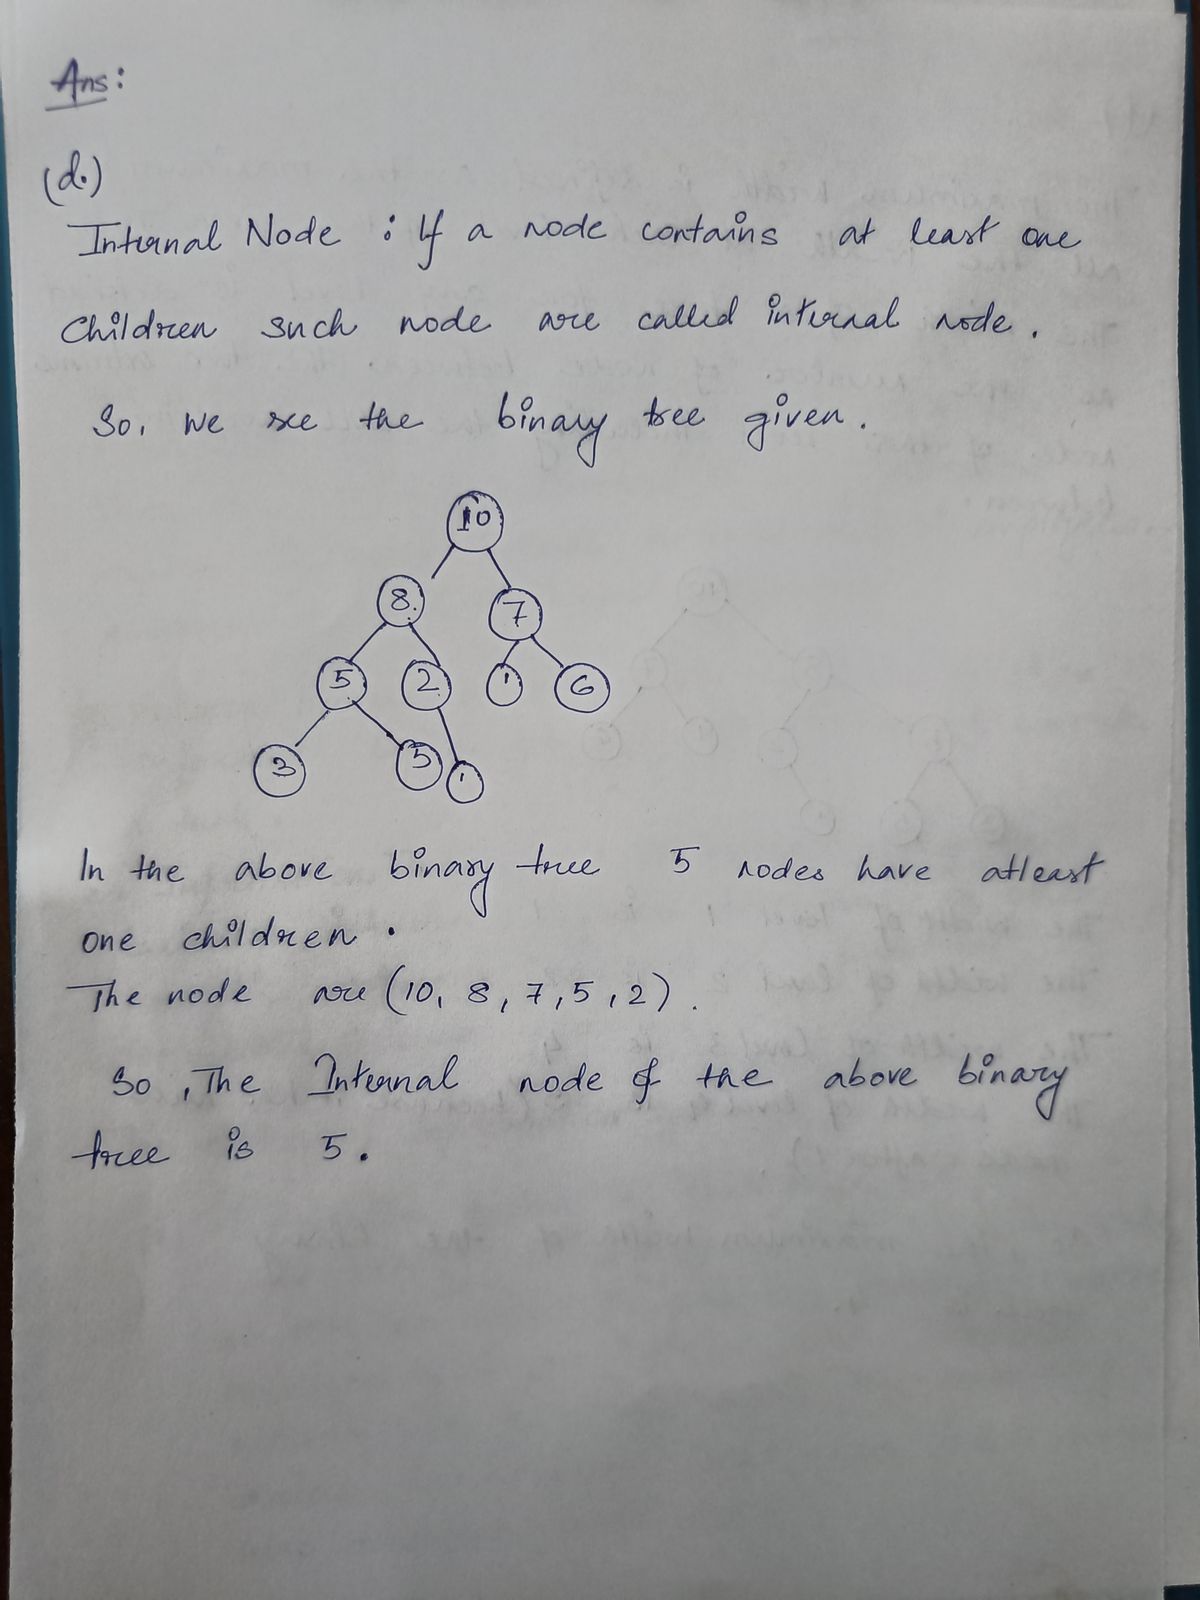 Ans:
(d.)
Internal Node : If a node contains at least one
Children such node are called internal node.
So, we see the binary tree given.
10
8. 7
5 2 1 6
3 5 1
In the above binary tree 5 nodes have atleast
one children.
The node are (10, 8, 7, 5, 2).
So, The Internal node of the above binary
tree is 5.